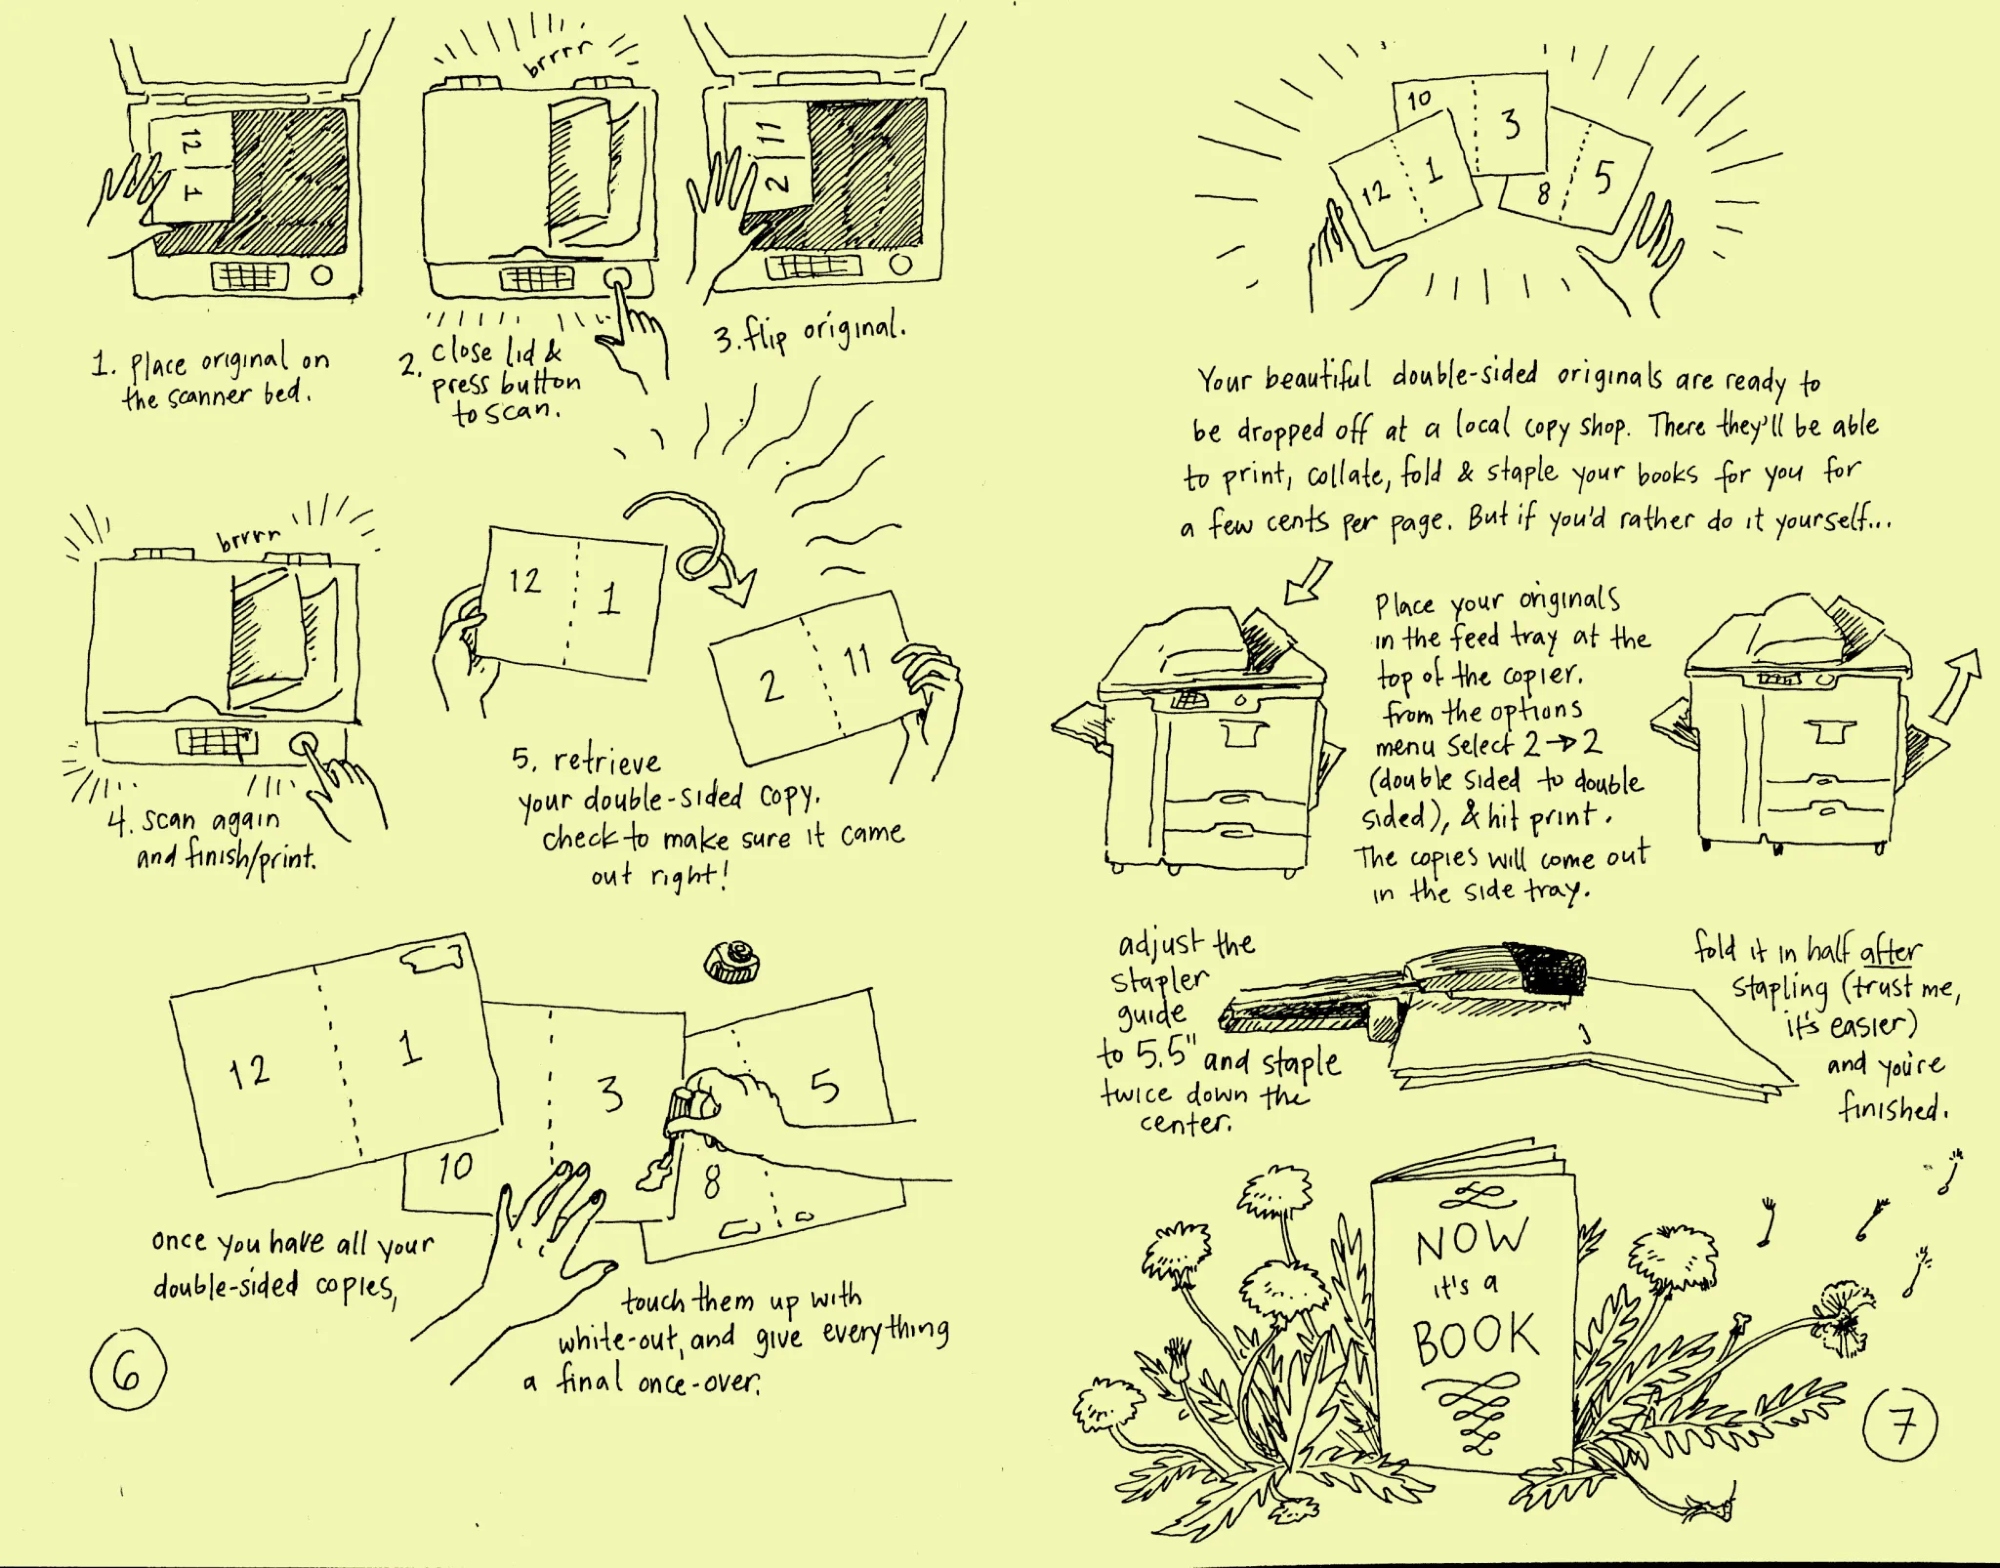 12
1
1. Place original on
the scanner bed.
brrrr
2. close lid &
press button
to scan.
11
2
3. flip original.
brrrr
4. scan again
and finish/print.
12 1
2 11
5. retrieve
your double-sided copy.
check to make sure it came
out right!
12 1
3
5
10
8
once you have all your
double-sided copies,
touch them up with
white-out, and give everything
a final once-over.
6
10 3
12 1
8 5
Your beautiful double-sided originals are ready to
be dropped off at a local copy shop. There they'll be able
to print, collate, fold & staple your books for you for
a few cents per page. But if you'd rather do it yourself...
Place your originals
in the feed tray at the
top of the copier.
from the options
menu select 2→2
(double sided to double
sided), & hit print.
The copies will come out
in the side tray.
adjust the
stapler
guide
to 5.5" and staple
twice down the
center.
fold it in half after
stapling (trust me,
it's easier)
and you're
finished.
NOW
it's a
BOOK
7